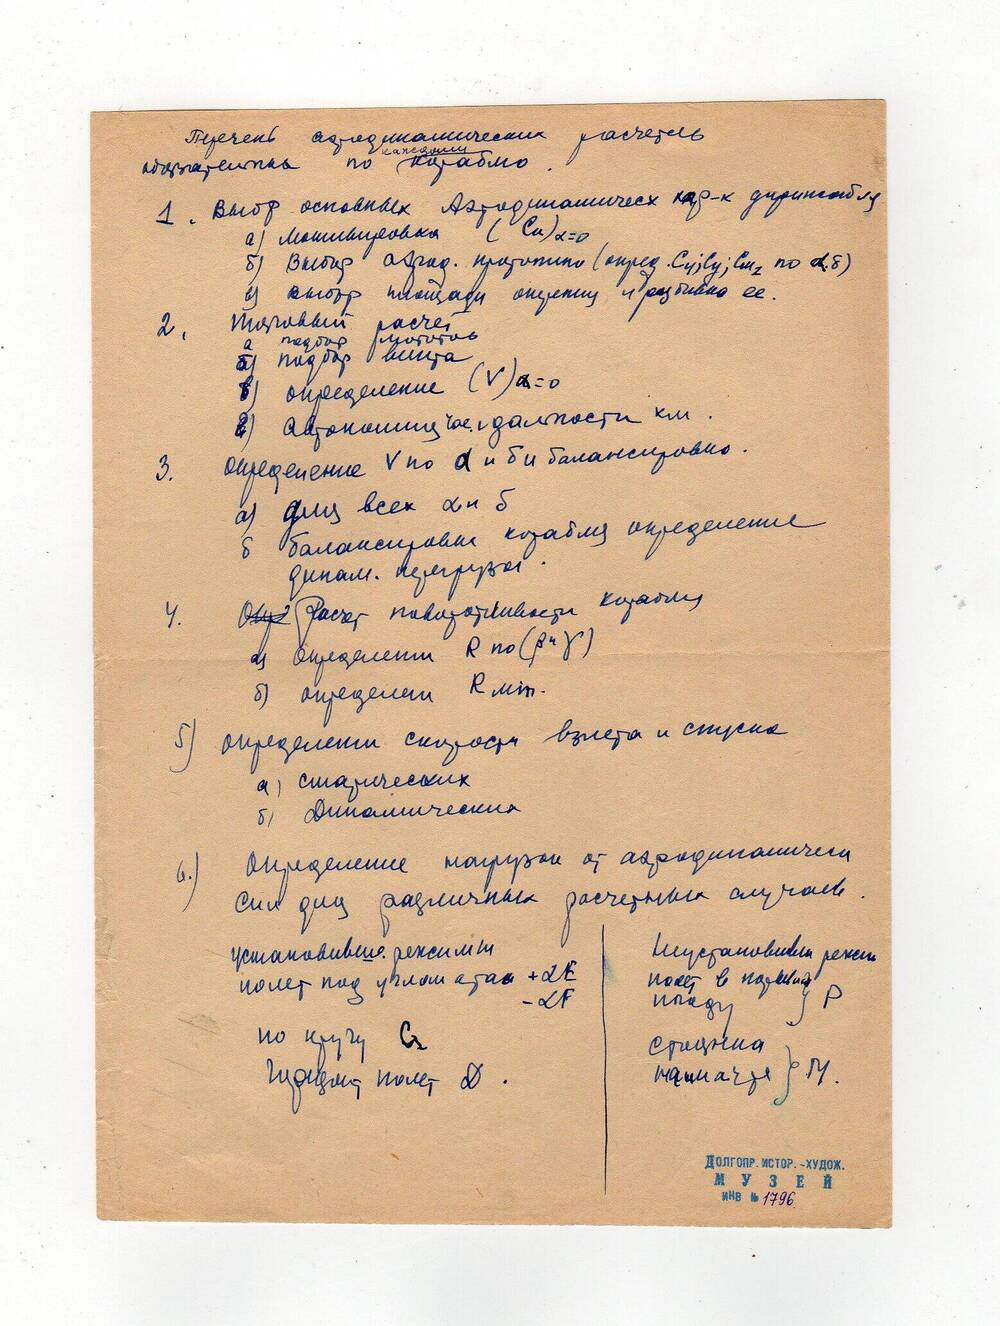 Перечень аэродинамических расчетов
обязательны по каждому кораблю.
1. Выбор основных Аэродинамическ хар-к дирижабля
а) мотивировка ( Cx)α=0
б) выбор аэрод. прототипа (опред. Cx; Cy; Cmz по α.б)
в) выбор площади оперения и разбивка ее.
2. Тяговый расчет
а подбор моторов
б) подбор винта
в) определение (V)α=0
г) автономия час. и дальности км.
3. Определение V по α и б и балансировка.
а) для всех α и б
б балансировки корабля определение
динам. перегрузки.
4. Расчет поворотливости корабля
а) определени R по (β и γ)
б) определен R мin.
5) определени скорости взлета и спуска
а) статических
б) динамических
6.) Определение нагрузок от аэродинамическ
сил для различных расчетных случаев.
Установивш. режимы
полет под углом атак + αE
- αF
по кругу
полет D.
Неустановивш режи
полет в порыв
} P
стоянка
на мачте } M.
Долгопр. истор.-худож.
МУЗЕЙ
инв № 1796